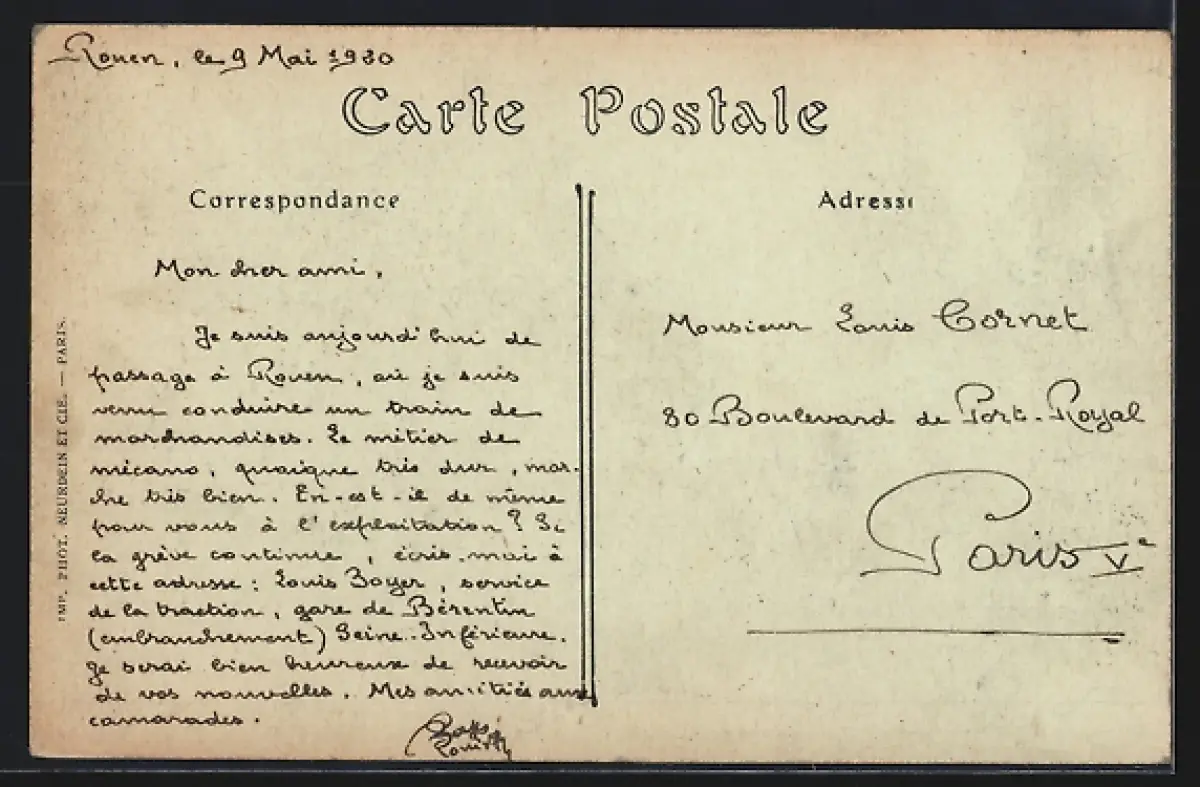 Rouen, le 9 Mai 1930
Carte Postale
Correspondance
Adresse
Mon cher ami,
Je suis aujourd'hui de
passage à Rouen, où je suis
venu conduire un train de
marchandises. Le métier de
mécano, quoique très dur, mar-
che très bien. En-est-il de même
pour vous à l'exploitation ? Si
la grève continue, écris-moi à
cette adresse : Louis Boyer, service
de la traction, gare de Barentin
(embranchement) Seine-Inférieure.
Je serai bien heureux de recevoir
de vos nouvelles. Mes amitiés aux
camarades.
Louis
Monsieur Louis Cornet
80 Boulevard de Port-Royal
Paris Ve
IMP. PHOT. NEURDEIN ET CIE. — PARIS.